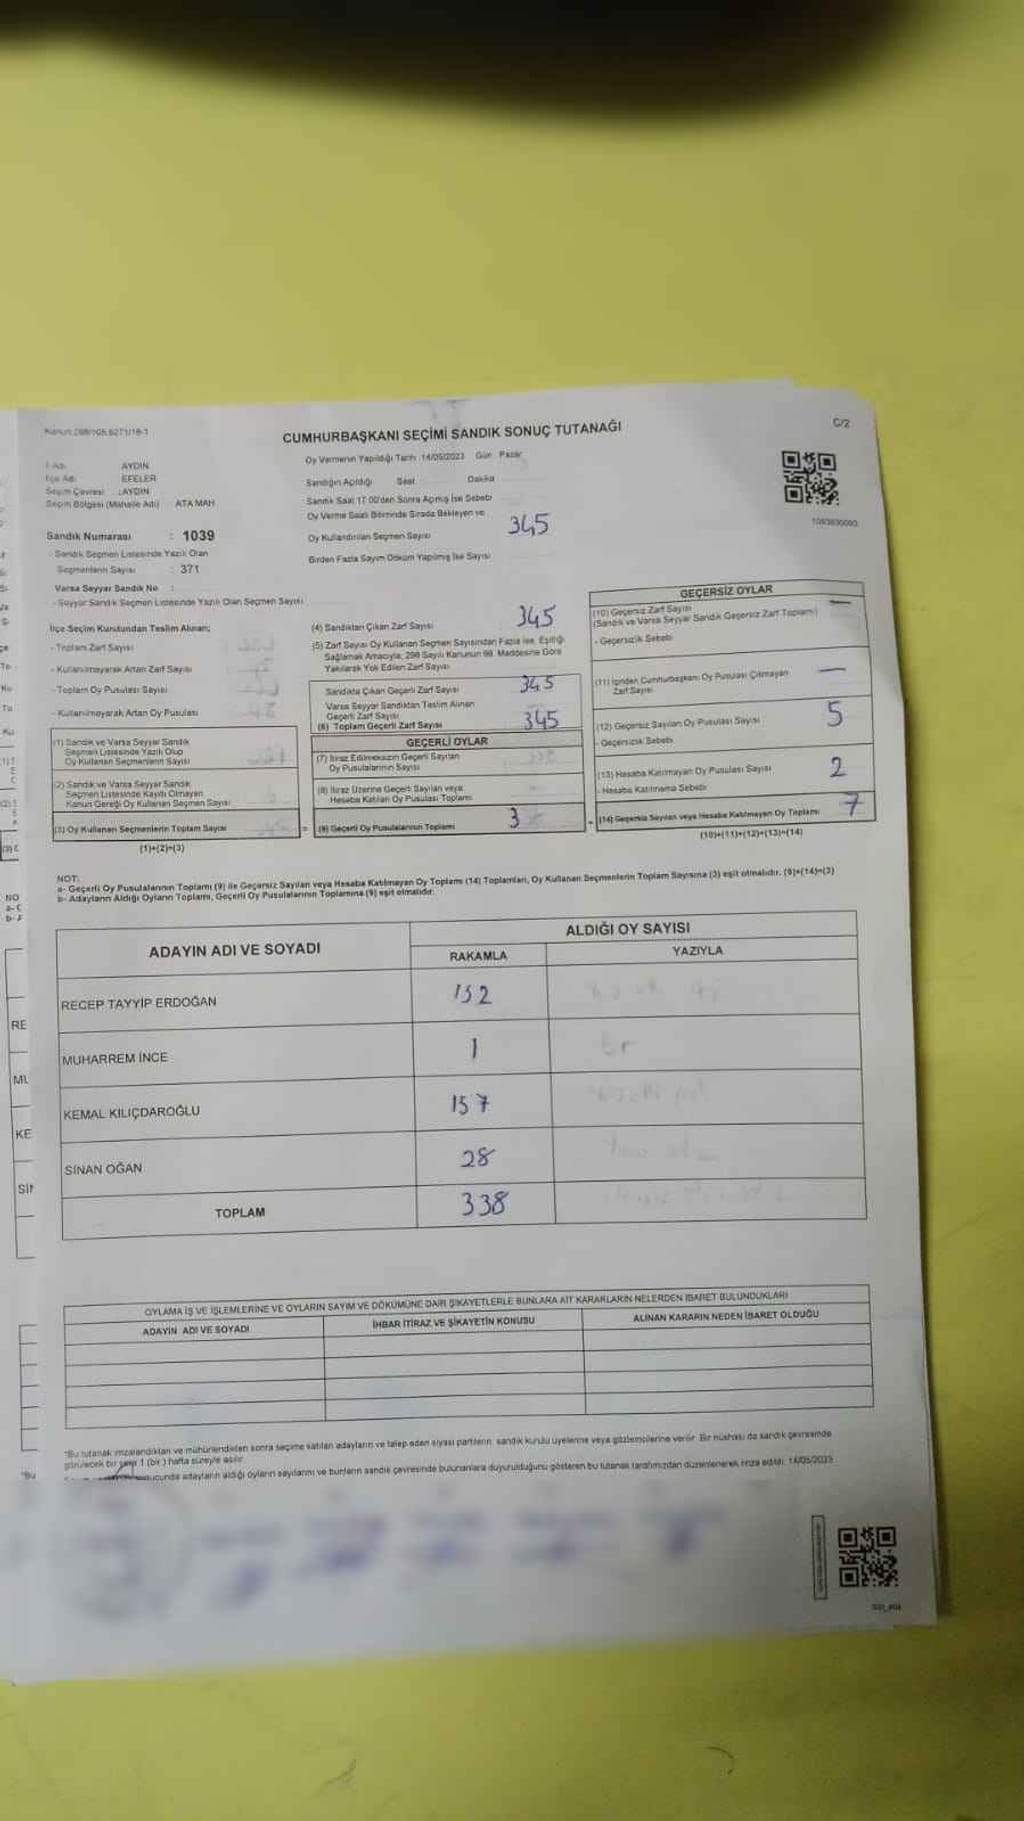 Kanun:298/105,6271/18-1
C/2
CUMHURBAŞKANI SEÇİMİ SANDIK SONUÇ TUTANAĞI
İl Adı : AYDIN
İlçe Adı : EFELER
Seçim Çevresi : AYDIN
Seçim Bölgesi (Mahalle Adı) ATA MAH
Sandık Numarası : 1039
- Sandık Seçmen Listesinde Yazılı Olan
Seçmenlerin Sayısı : 371
Varsa Seyyar Sandık No :
- Seyyar Sandık Seçmen Listesinde Yazılı Olan Seçmen Sayısı
Oy Vermenin Yapıldığı Tarih: 14/05/2023 Gün: Pazar
Sandığın Açıldığı Saat Dakika
Sandık Saat 17.00'den Sonra Açılmış İse Sebebi
Oy Verme Saati Bitiminde Sırada Bekleyen ve
Oy Kullandırılan Seçmen Sayısı 345
Birden Fazla Sayım Döküm Yapılmış İse Sayısı
İlçe Seçim Kurulundan Teslim Alınan;
- Toplam Zarf Sayısı
- Kullanılmayarak Artan Zarf Sayısı
- Toplam Oy Pusulası Sayısı
- Kullanılmayarak Artan Oy Pusulası
(1) Sandık ve Varsa Seyyar Sandık
Seçmen Listesinde Yazılı Olup
Oy Kullanan Seçmenlerin Sayısı
(2) Sandık ve Varsa Seyyar Sandık
Seçmen Listesinde Kayıtlı Olmayan
Kanun Gereği Oy Kullanan Seçmen Sayısı
(3) Oy Kullanan Seçmenlerin Toplam Sayısı
(1)+(2)=(3)
(4) Sandıktan Çıkan Zarf Sayısı 345
(5) Zarf Sayısı Oy Kullanan Seçmen Sayısından Fazla İse, Eşitliği
Sağlamak Amacıyla, 298 Sayılı Kanunun 98. Maddesine Göre
Yakılarak Yok Edilen Zarf Sayısı
Sandıkta Çıkan Geçerli Zarf Sayısı 345
Varsa Seyyar Sandıktan Teslim Alınan
Geçerli Zarf Sayısı
(6) Toplam Geçerli Zarf Sayısı 345
GEÇERLİ OYLAR
(7) İtiraz Edilmeksizin Geçerli Sayılan
Oy Pusulalarının Sayısı
(8) İtiraz Üzerine Geçerli Sayılan veya
Hesaba Katılan Oy Pusulası Toplamı
= (9) Geçerli Oy Pusulalarının Toplamı 3
GEÇERSİZ OYLAR
(10) Geçersiz Zarf Sayısı —
(Sandık ve Varsa Seyyar Sandık Geçersiz Zarf Toplamı)
- Geçersizlik Sebebi
(11) İçinden Cumhurbaşkanı Oy Pusulası Çıkmayan —
Zarf Sayısı
(12) Geçersiz Sayılan Oy Pusulası Sayısı 5
- Geçersizlik Sebebi
(13) Hesaba Katılmayan Oy Pusulası Sayısı 2
- Hesaba Katılmama Sebebi
+ (14) Geçersiz Sayılan veya Hesaba Katılmayan Oy Toplamı 7
(10)+(11)+(12)+(13)=(14)
NOT:
a- Geçerli Oy Pusulalarının Toplamı (9) ile Geçersiz Sayılan veya Hesaba Katılmayan Oy Toplamı (14) Toplamları, Oy Kullanan Seçmenlerin Toplam Sayısına (3) eşit olmalıdır. (9)+(14)=(3)
b- Adayların Aldığı Oyların Toplamı, Geçerli Oy Pusulalarının Toplamına (9) eşit olmalıdır.
ADAYIN ADI VE SOYADI
ALDIĞI OY SAYISI
RAKAMLA YAZIYLA
RECEP TAYYİP ERDOĞAN 152
MUHARREM İNCE 1
KEMAL KILIÇDAROĞLU 157
SİNAN OĞAN 28
TOPLAM 338
OYLAMA İŞ VE İŞLEMLERİNE VE OYLARIN SAYIM VE DÖKÜMÜNE DAİR ŞİKAYETLERLE BUNLARA AİT KARARLARIN NELERDEN İBARET BULUNDUKLARI
ADAYIN ADI VE SOYADI İHBAR İTİRAZ VE ŞİKAYETİN KONUSU ALINAN KARARIN NEDEN İBARET OLDUĞU
"Bu tutanak imzalandıktan ve mühürlendikten sonra seçime katılan adayların ve talep eden siyasi partilerin sandık kurulu üyelerine veya gözlemcilerine verilir. Bir nüshası da sandık çevresinde
görülecek bir yere 1 (bir) hafta süreyle asılır.
sonucunda adayların aldığı oyların sayılarını ve bunların sandık çevresinde bulunanlara duyurulduğunu gösteren bu tutanak tarafımızdan düzenlenerek imza edildi. 14/05/2023